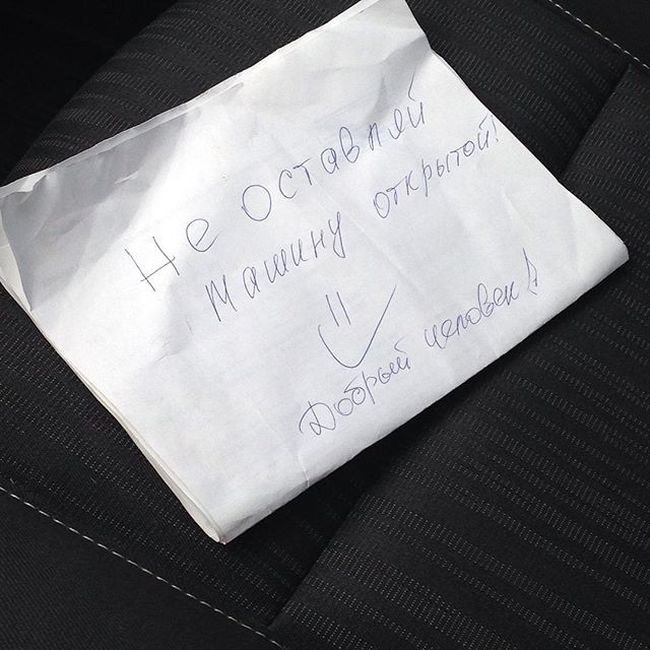 Не оставляй
машину открытой!
Добрый человек!